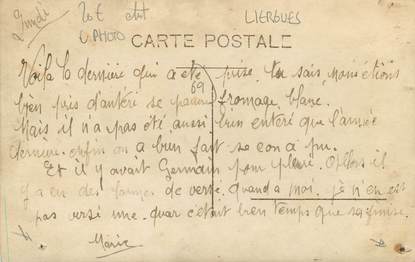 Lundi 20€ état LIERGUES
C PHOTO
CARTE POSTALE
Voila la dernière qui a été prise. tu sais, nous étions
69
bien près d'antéré se fromage blanc.
Mais il n'a pas été aussi bien enteré que l'année
dernière. enfin on a bien fait se con a pu.
Et il y avait Germain pour pleuré. Alors il
y a eu des larmes de versé. quand a moi. je n'en est
pas versé une. quar c'était bien temps que sa finise.
Marie